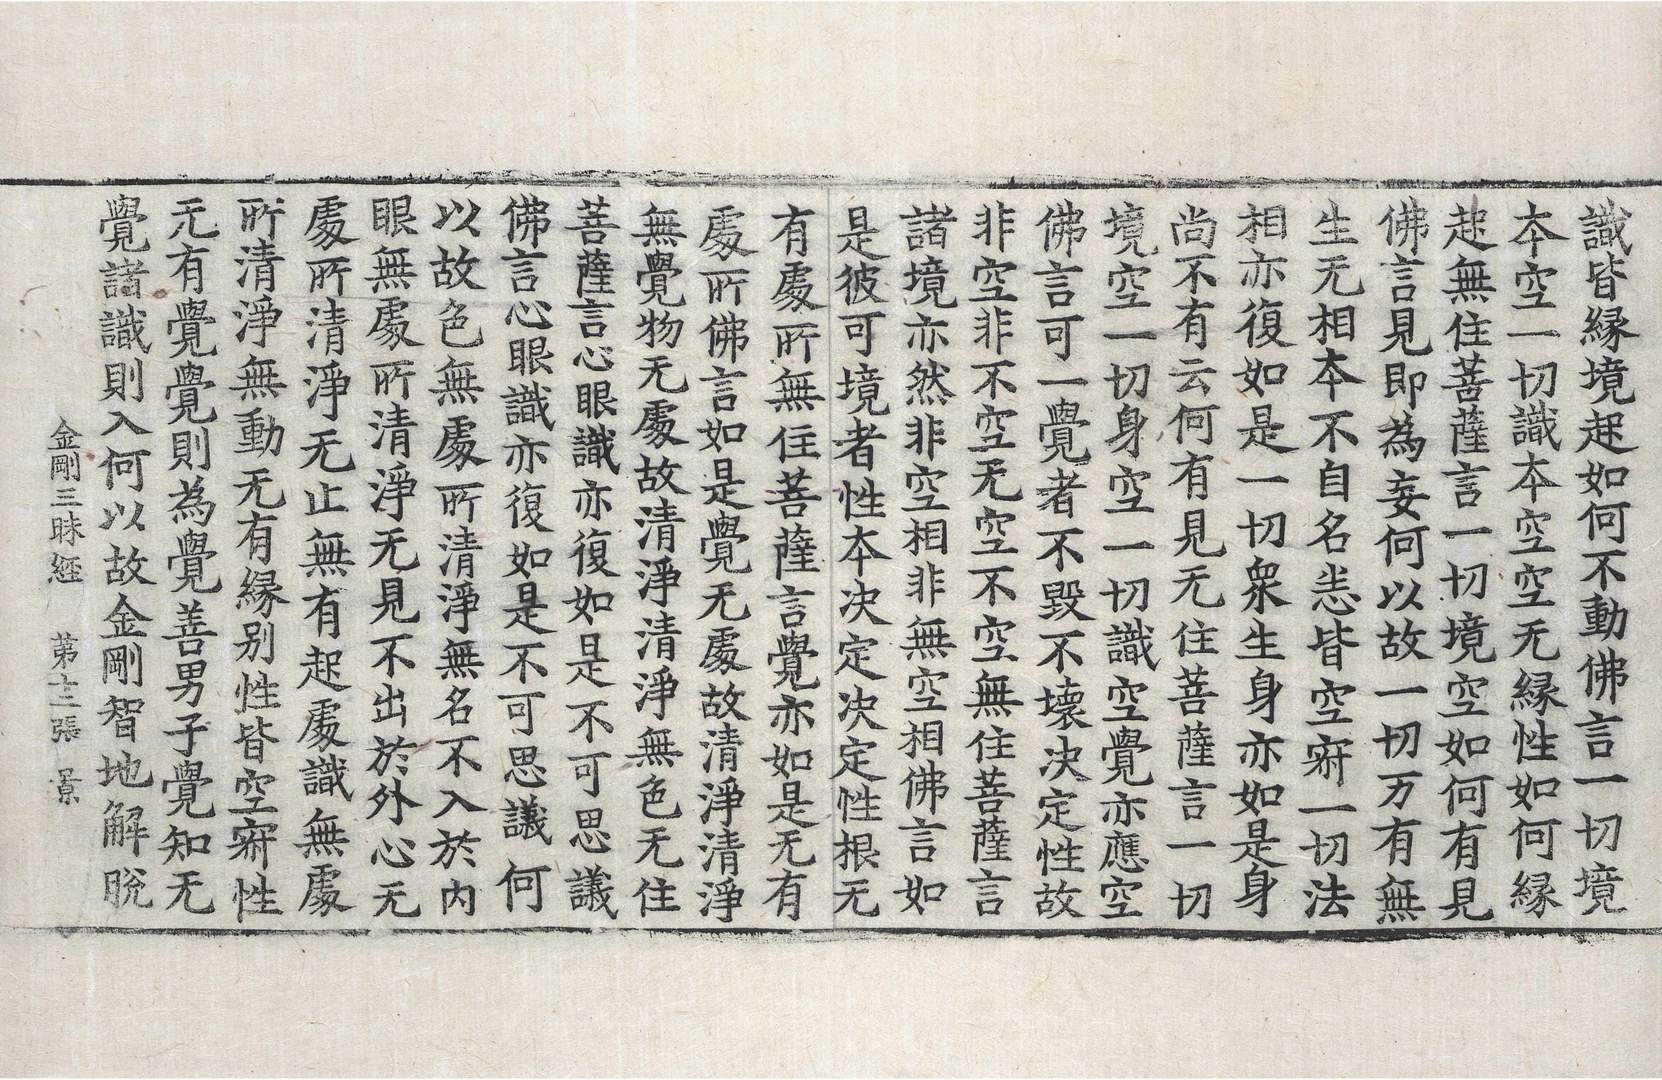 識皆縁境起如何不動佛言一切境
本空一切識本空空无縁性如何縁
起無住菩薩言一切境空如何有見
佛言見即為妄何以故一切万有無
生无相本不自名悉皆空寂一切法
相亦復如是一切衆生身亦如是身
尚不有云何有見无住菩薩言一切
境空一切身空一切識空覺亦應空
佛言可一覺者不毀不壊决定性故
非空非不空无空不空無住菩薩言
諸境亦然非空相非無空相佛言如
是彼可境者性本决定决定性根无
有處所無住菩薩言覺亦如是无有
處所佛言如是覺无處故清淨清淨
無覺物无處故清淨清淨無色无住
菩薩言心眼識亦復如是不可思議
佛言心眼識亦復如是不可思議何
以故色無處所清淨無名不入於内
眼無處所清淨无見不出於外心无
處所清淨无止無有起處識無處
所清淨無動无有縁别性皆空寂性
无有覺覺則為覺善男子覺知无
覺諸識則入何以故金剛智地解脫
金剛三昧經 第十三張 景